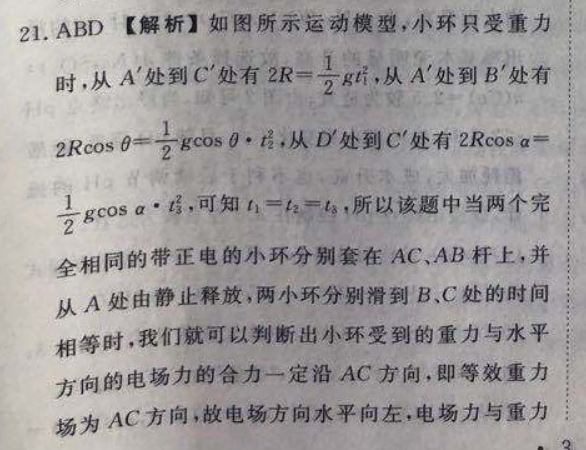 21. ABD 【解析】如图所示运动模型,小环只受重力
时,从 A′处到 C′处有 2R=\frac{1}{2}gt₁²,从 A′处到 B′处有
2Rcos θ=\frac{1}{2}gcos θ·t₂²,从 D′处到 C′处有 2Rcos α=
\frac{1}{2}gcos α·t₃²,可知 t₁=t₂=t₃,所以该题中当两个完
全相同的带正电的小环分别套在 AC、AB 杆上,并
从 A 处由静止释放,两小环分别滑到 B、C 处的时间
相等时,我们就可以判断出小环受到的重力与水平
方向的电场力的合力一定沿 AC 方向,即等效重力
场为 AC 方向,故电场方向水平向左,电场力与重力
· 3